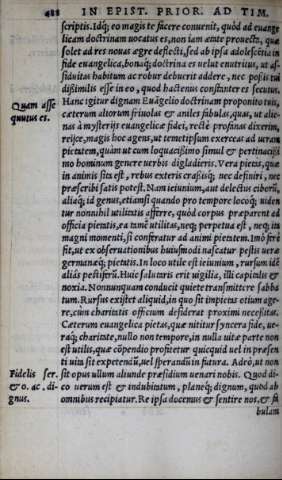 488 IN EPIST. PRIOR. AD TIM.
scriptis. Idq́; eo magis te facere conuenit, quòd ad euange
licam doctrinam uocatus es, non iam ætate prouecta, quæ
solet ad res nouas ægre deflecti, sed ab ipsa adolescētia in
fide euangelica, bonaq́; doctrina es uelut enutritus, ut as-
siduitas habitum ac robur debuerit addere, nec possis tui
dißimilis esse in eo, quod hactenus constanter es secutus.
Quam asse
quutus es.
Hanc igitur dignam Euāgelio doctrinam proponito tuis,
cæterum aliorum friuolas & aniles fabulas, quas, ut alie-
nas à mysterijs euangelicæ fidei, rectè profanas dixerim,
reijce, magis hoc agens, ut temetipsum exerceas ad ueram
pietatem, quàm ut cum loquacißimo simul & pertinacißi
mo hominum genere uerbis digladieris. Vera pietas, quæ
in animis sita est, rebus externis craßisq́; nec definiri, nec
præscribi satis potest. Nam ieiunium, aut delectus ciborū,
aliaq́; id genus, etiamsi quando pro tempore locoq́; uiden
tur nonnihil utilitatis afferre, quòd corpus præparent ad
officia pietatis, ea tamē utilitas, neq; perpetua est, neq; ita
magni momenti, si conferatur ad animi pietatem. Imò ferè
fit, ut ex obseruationibus huiusmodi nascatur pestis ueræ
germanæq́; pietatis. In loco utile est ieiunium, rursum idē
aliâs pestiferū. Huic salutaris erit uigilia, illi capitalis &
noxia. Nonnunquam conducit quiete transmittere sabba
tum. Rursus existet aliquid, in quo sit impietas otium age-
re, cùm charitatis officium desiderat proximi necessitas.
Cæterum euangelica pietas, quæ nititur syncera fide, ue-
raq́; charitate, nullo non tempore, in nulla uitæ parte non
est utilis, quæ cōpendio profitetur quicquid uel in præsen
ti uita sit expetendū, uel sperandū in futura. Adeò, ut non
Fidelis ser.
& o. ac. di-
gnus.
sit opus ullum aliunde præsidium uenari nobis. Quod di-
co uerum est & indubitatum, planeq́; dignum, quod ab
omnibus recipiatur. Re ipsa docemus & sentire nos, et fa
bulam